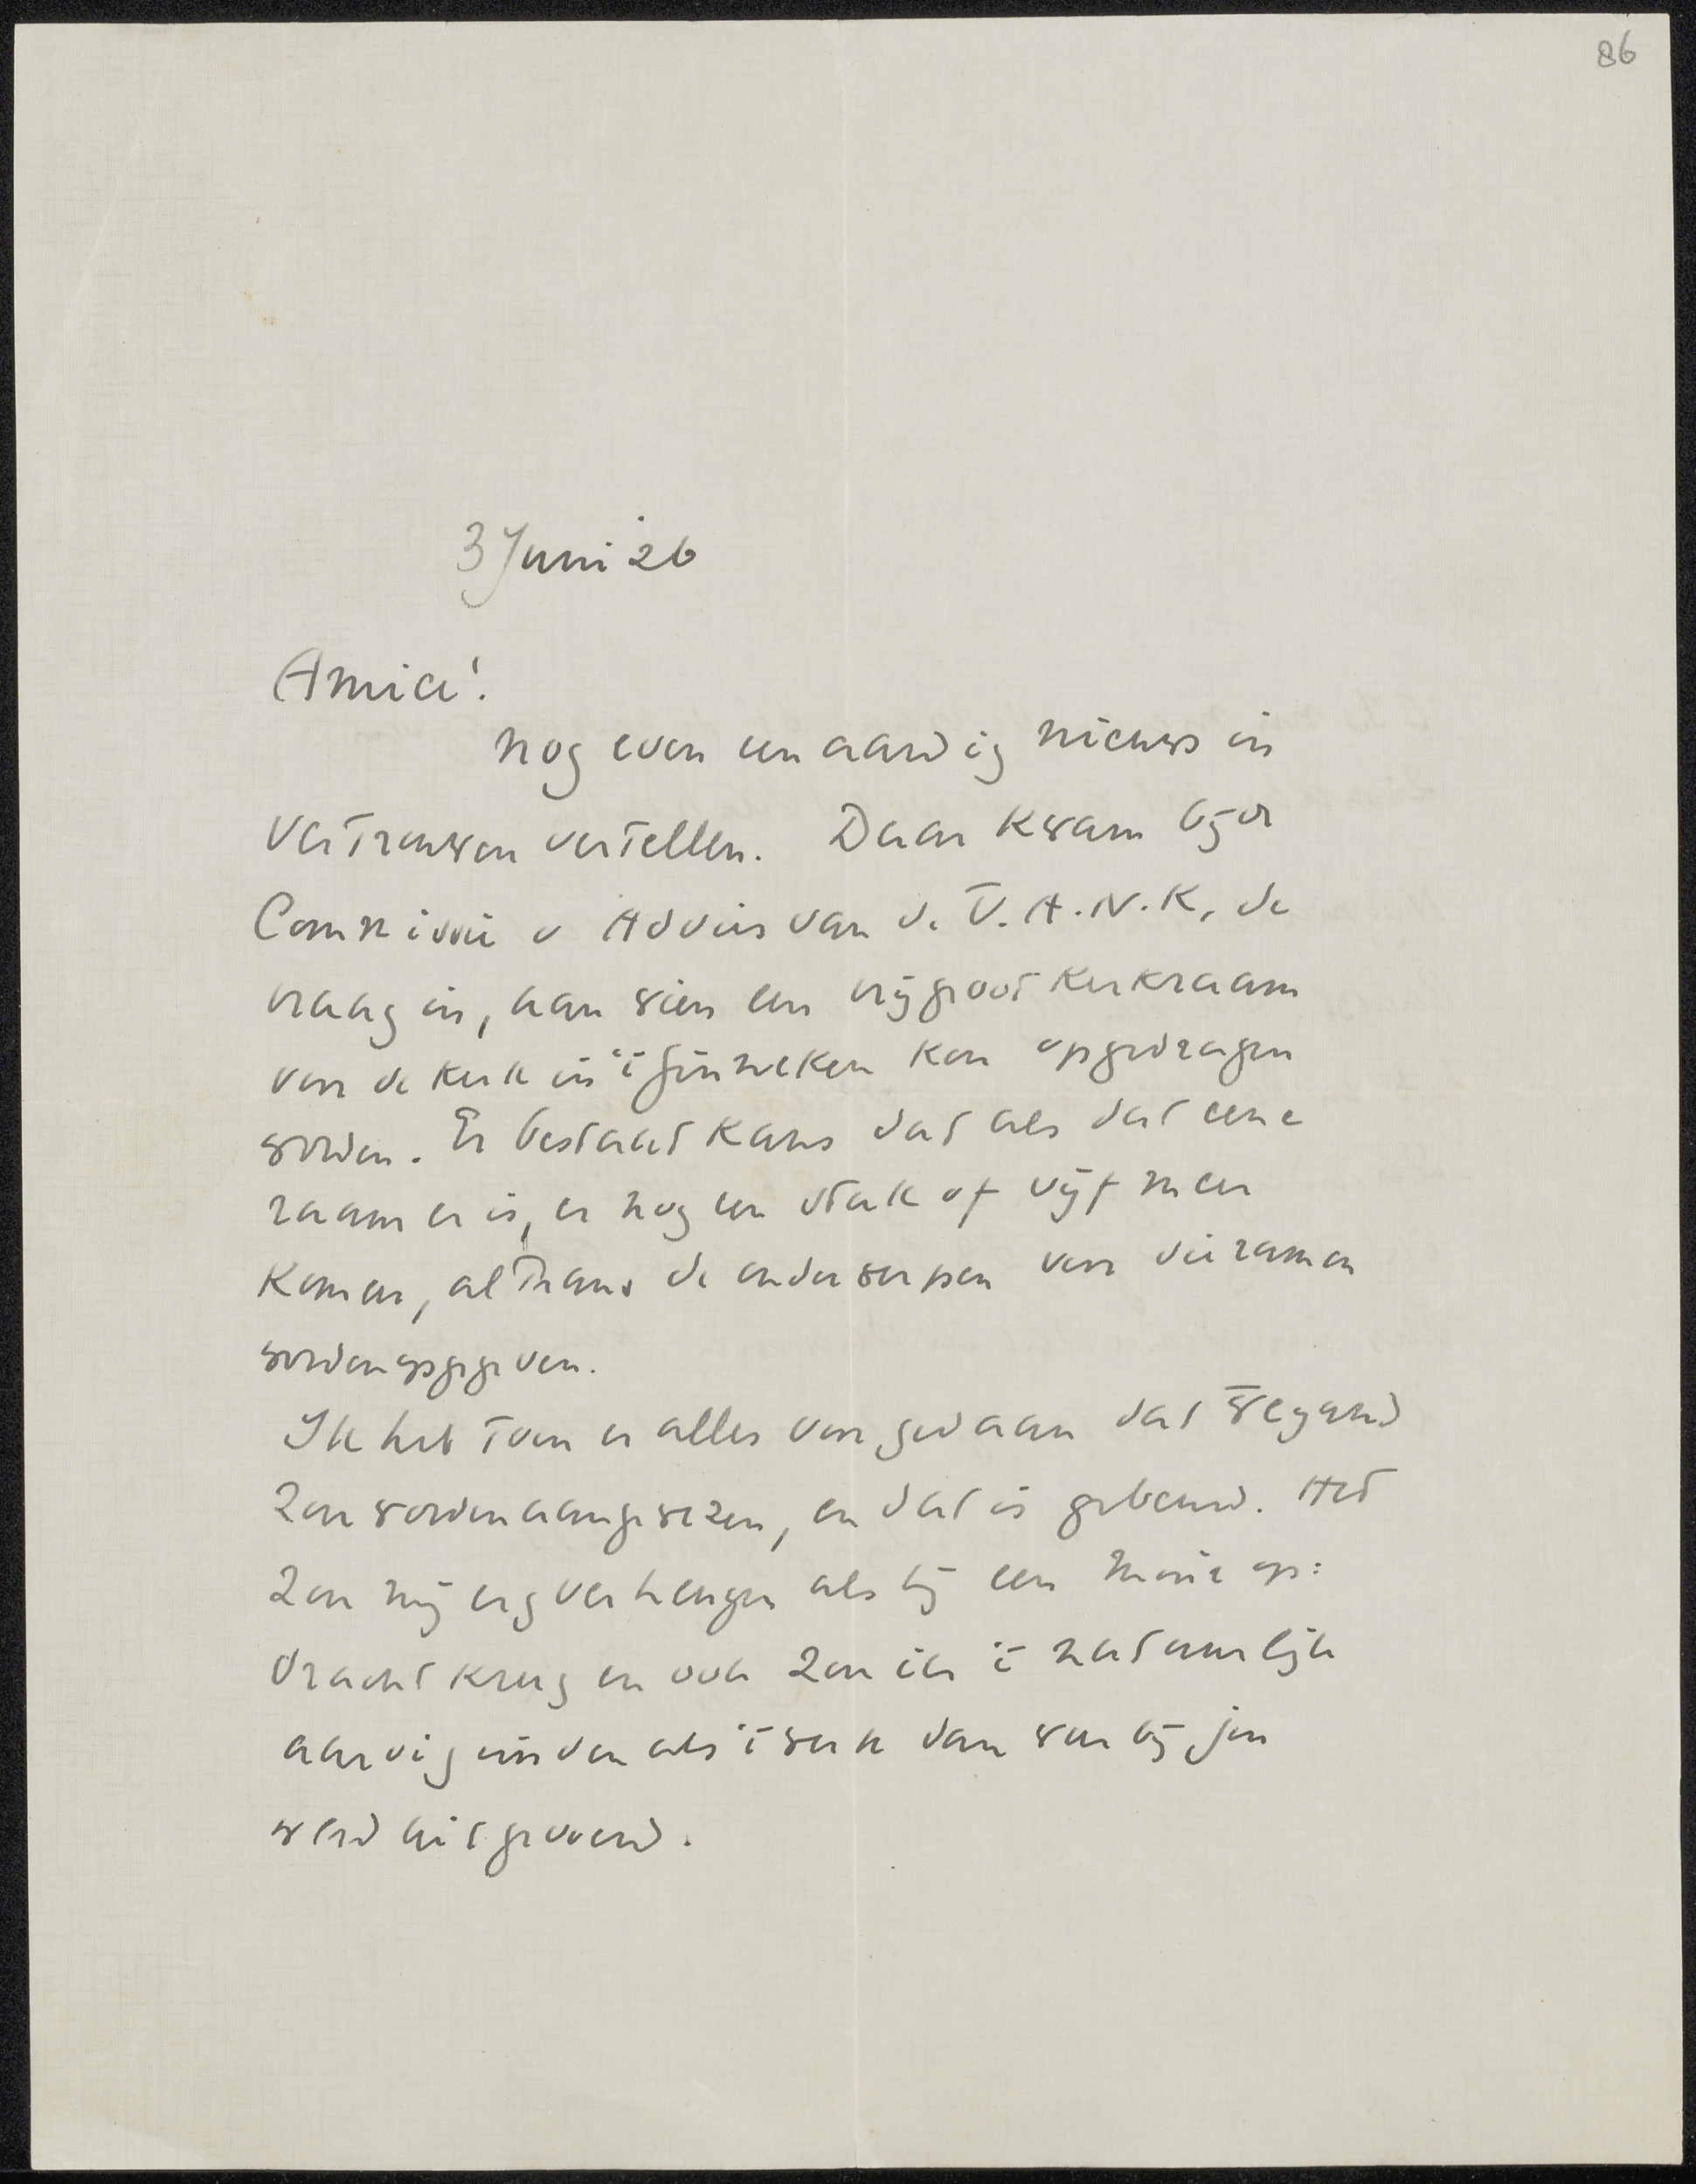 86
3 Juni 26
Amice!
Nog even een aardig nieuws in
vertrouwen vertellen. Daar kwam bij de
Commissie v Advies van d. V.A.N.K. de
vraag in, aan wien een vrij groot kerkraam
voor de kerk in 't Ginneken kon opgedragen
worden. Er bestaat kans dat als dat eene
raam er is, er nog een stuk of vijf meer
komen, althans de onderwerpen voor die ramen
worden opgegeven.
Ik heb toen er alles voor gedaan dat Wegand
zou worden aangewezen, en dat is gebeurd. Het
zou mij erg verheugen als hij een mooie op:
dracht kreeg en ook zou ik 't natuurlijk
aardig vinden als 't werk dan weer bij jou
werd uitgevoerd.